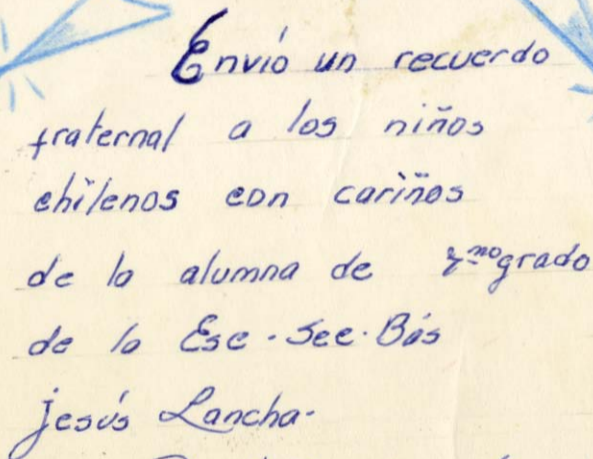 Envió un recuerdo
fraternal a los niños
chilenos con cariños
de la alumna de 7mo grado
de la Esc. Sec. Bás
Jesús Lancha-